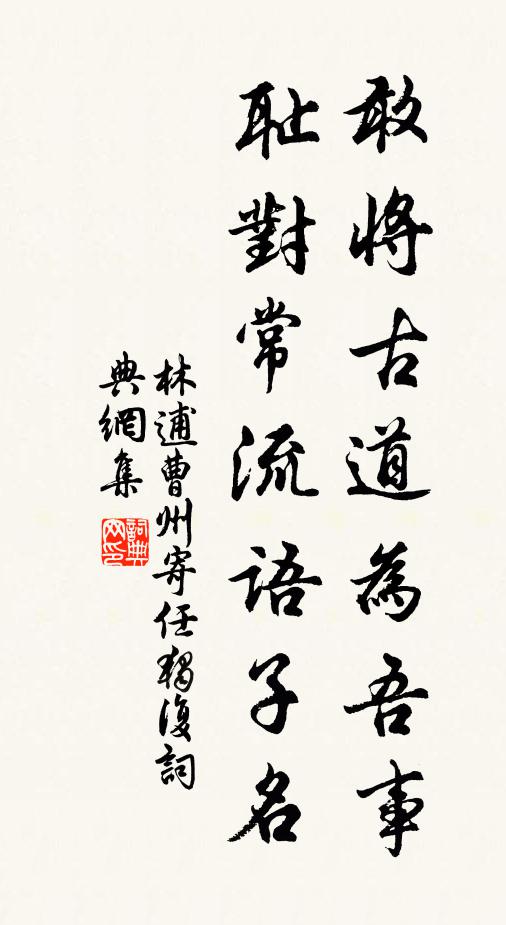 敢將古道為吾事
恥對常流語子名
林逋曹州寄任獨復詞
典網集
詞典
网印